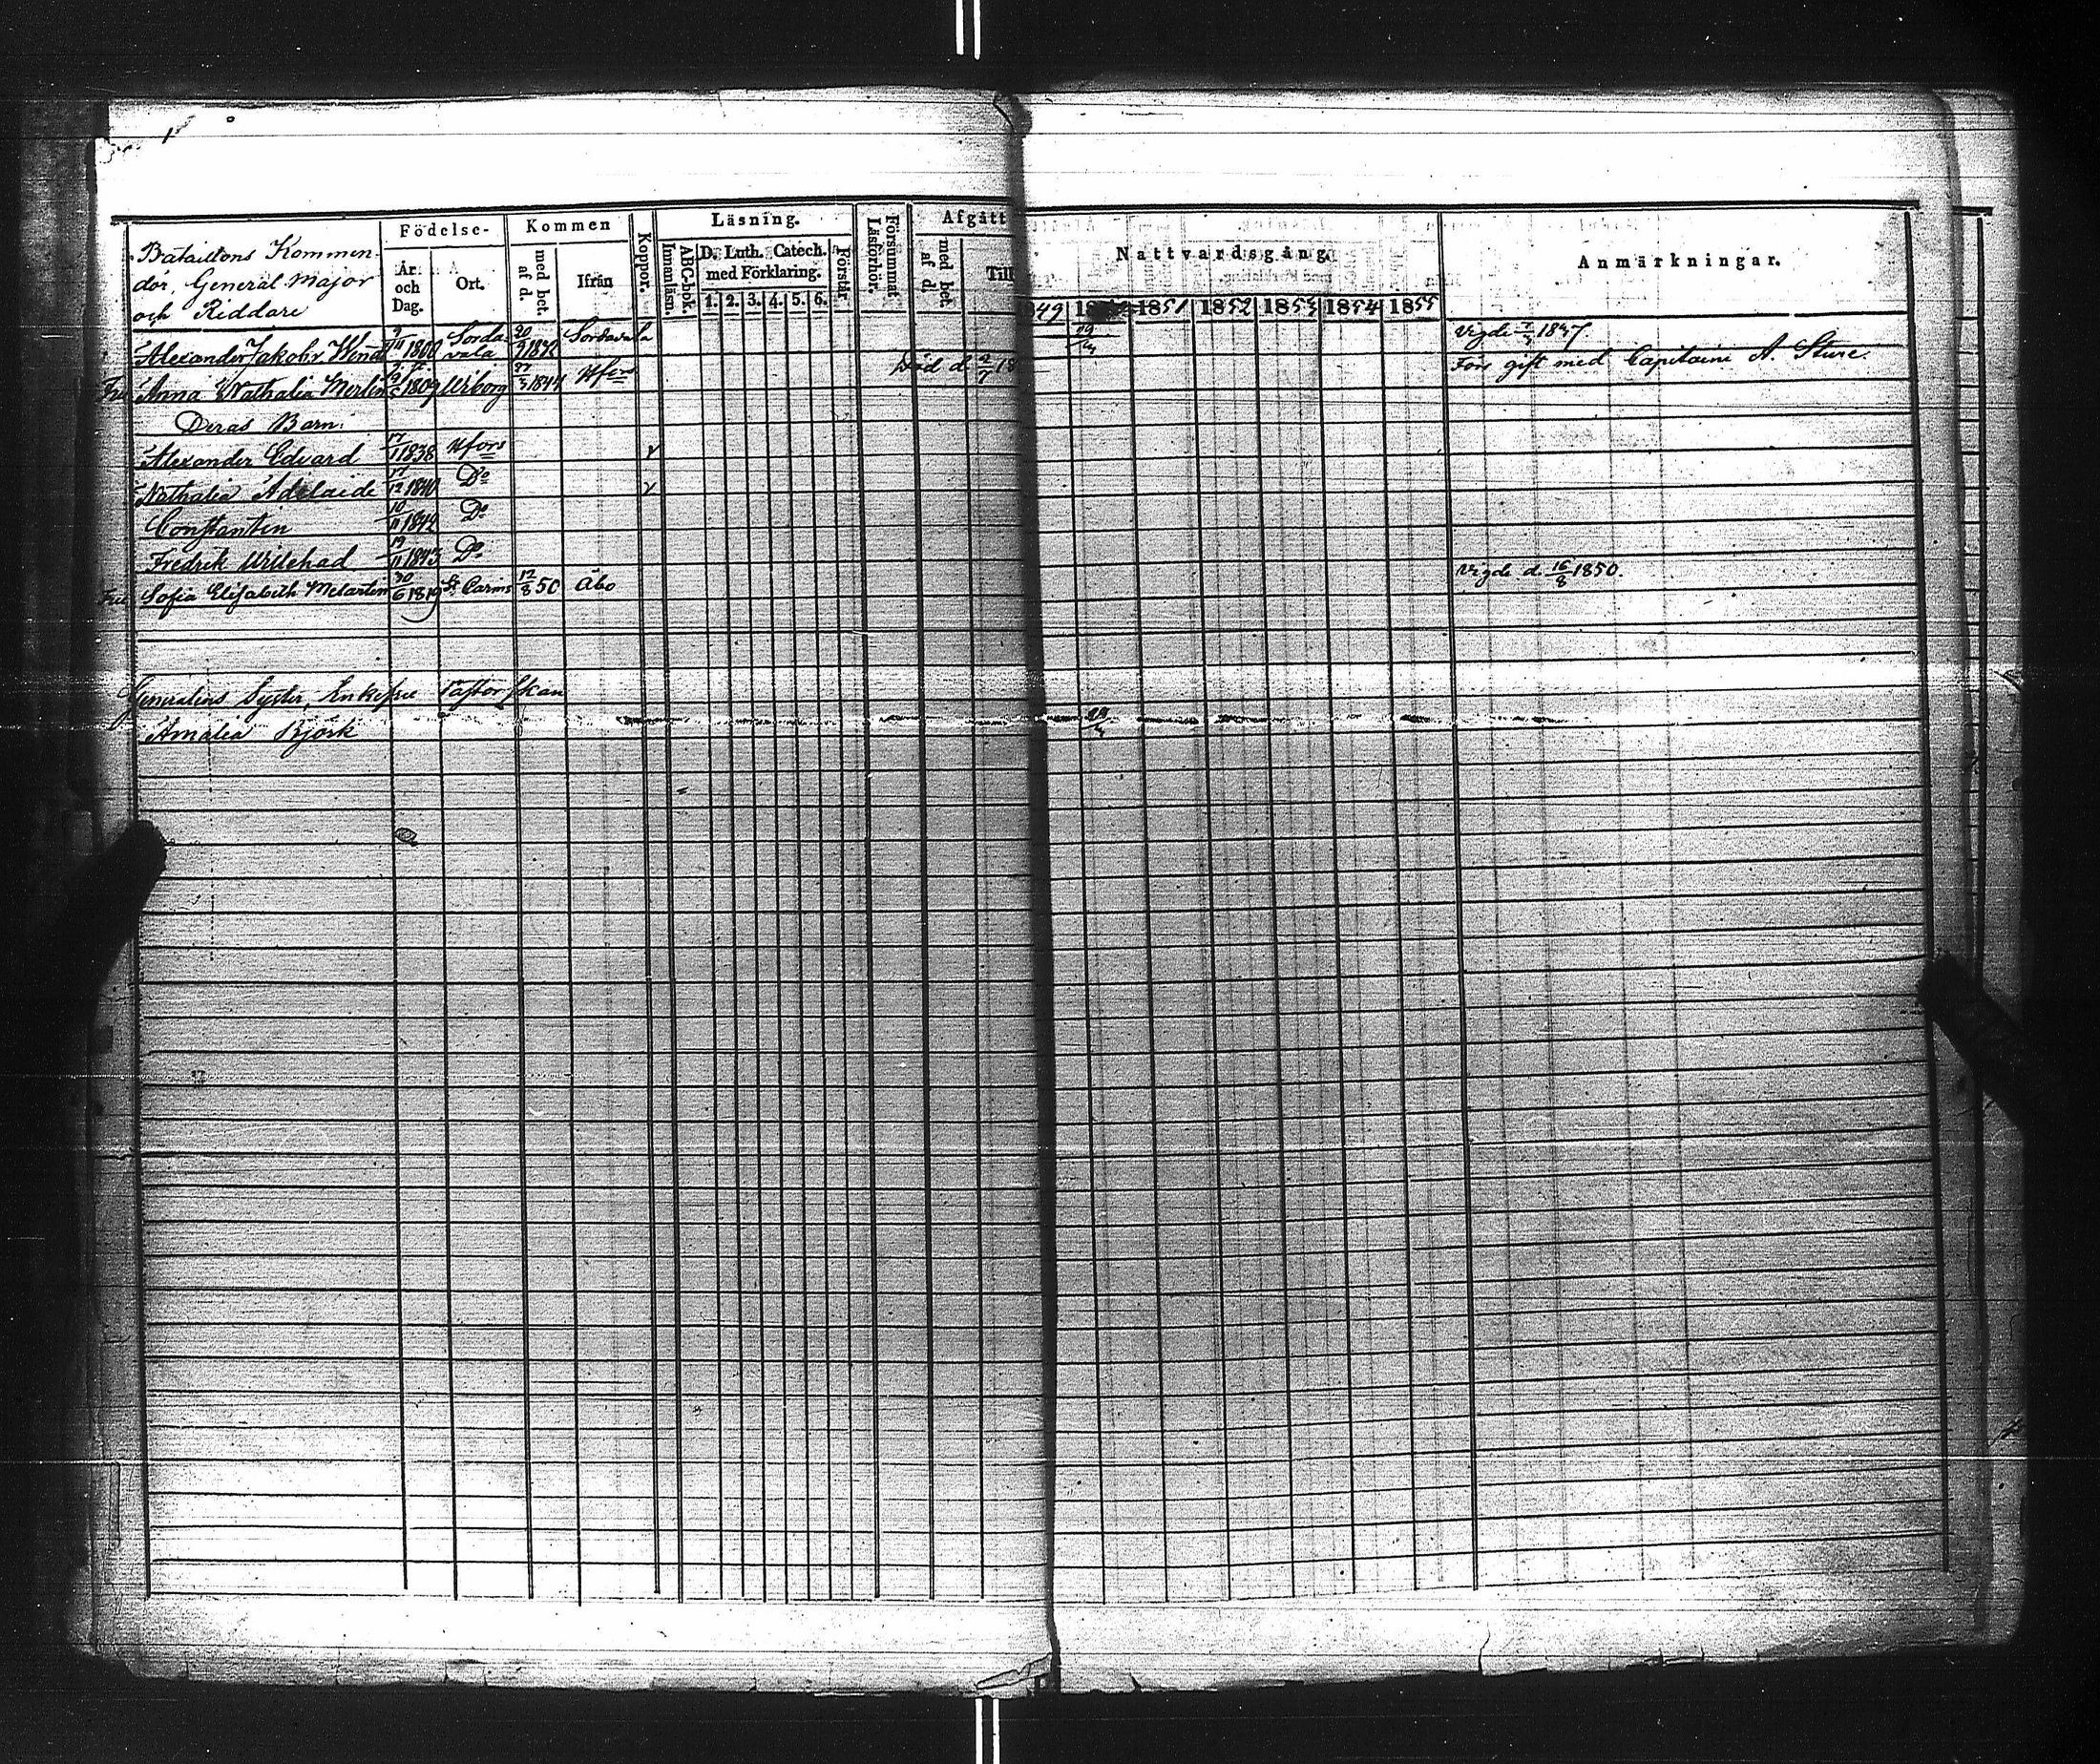 1
Födelse- Kommen Koppor. Läsning. Försummat Läsförhör. Afgått Nattvardsgång. Anmärkningar.
Bataillons Kommen-
dör, General Major
och Riddare
År och Dag. Ort. med bet. af d. Ifrån ABC-bok. Innanläsn. D. Luth. Catech. med Förklaring. Förstår med bet. af d. Till
1. 2. 3. 4. 5. 6. 849 1851 1852 1853 1854 1855
Alexander Jakobr. Wendt 9/11 1800 Sordavala 20/9 1832 Sordavala Vigde 1847.
Fru Anna Nathalia Merlin 1809 Wiborg 3 1844 Hfors Död d. 2/7 18 Förr gift med Capitaine A. Sture.
Deras Barn.
Alexander Edvard 17/1 1838 Hfors v
Nathalia Adelaide 17/12 1840 Do v
Constantin 10/11 1842 Do
Fredrik Wilehad 19/11 1843 Do
Fru Sofia Elisabeth Melartin 30/6 1819 St Carins 12/8 50 Åbo Vigde d. 16/8 1850.
Generalens Syster, Enkefru Pastorskan
Amalia Björk